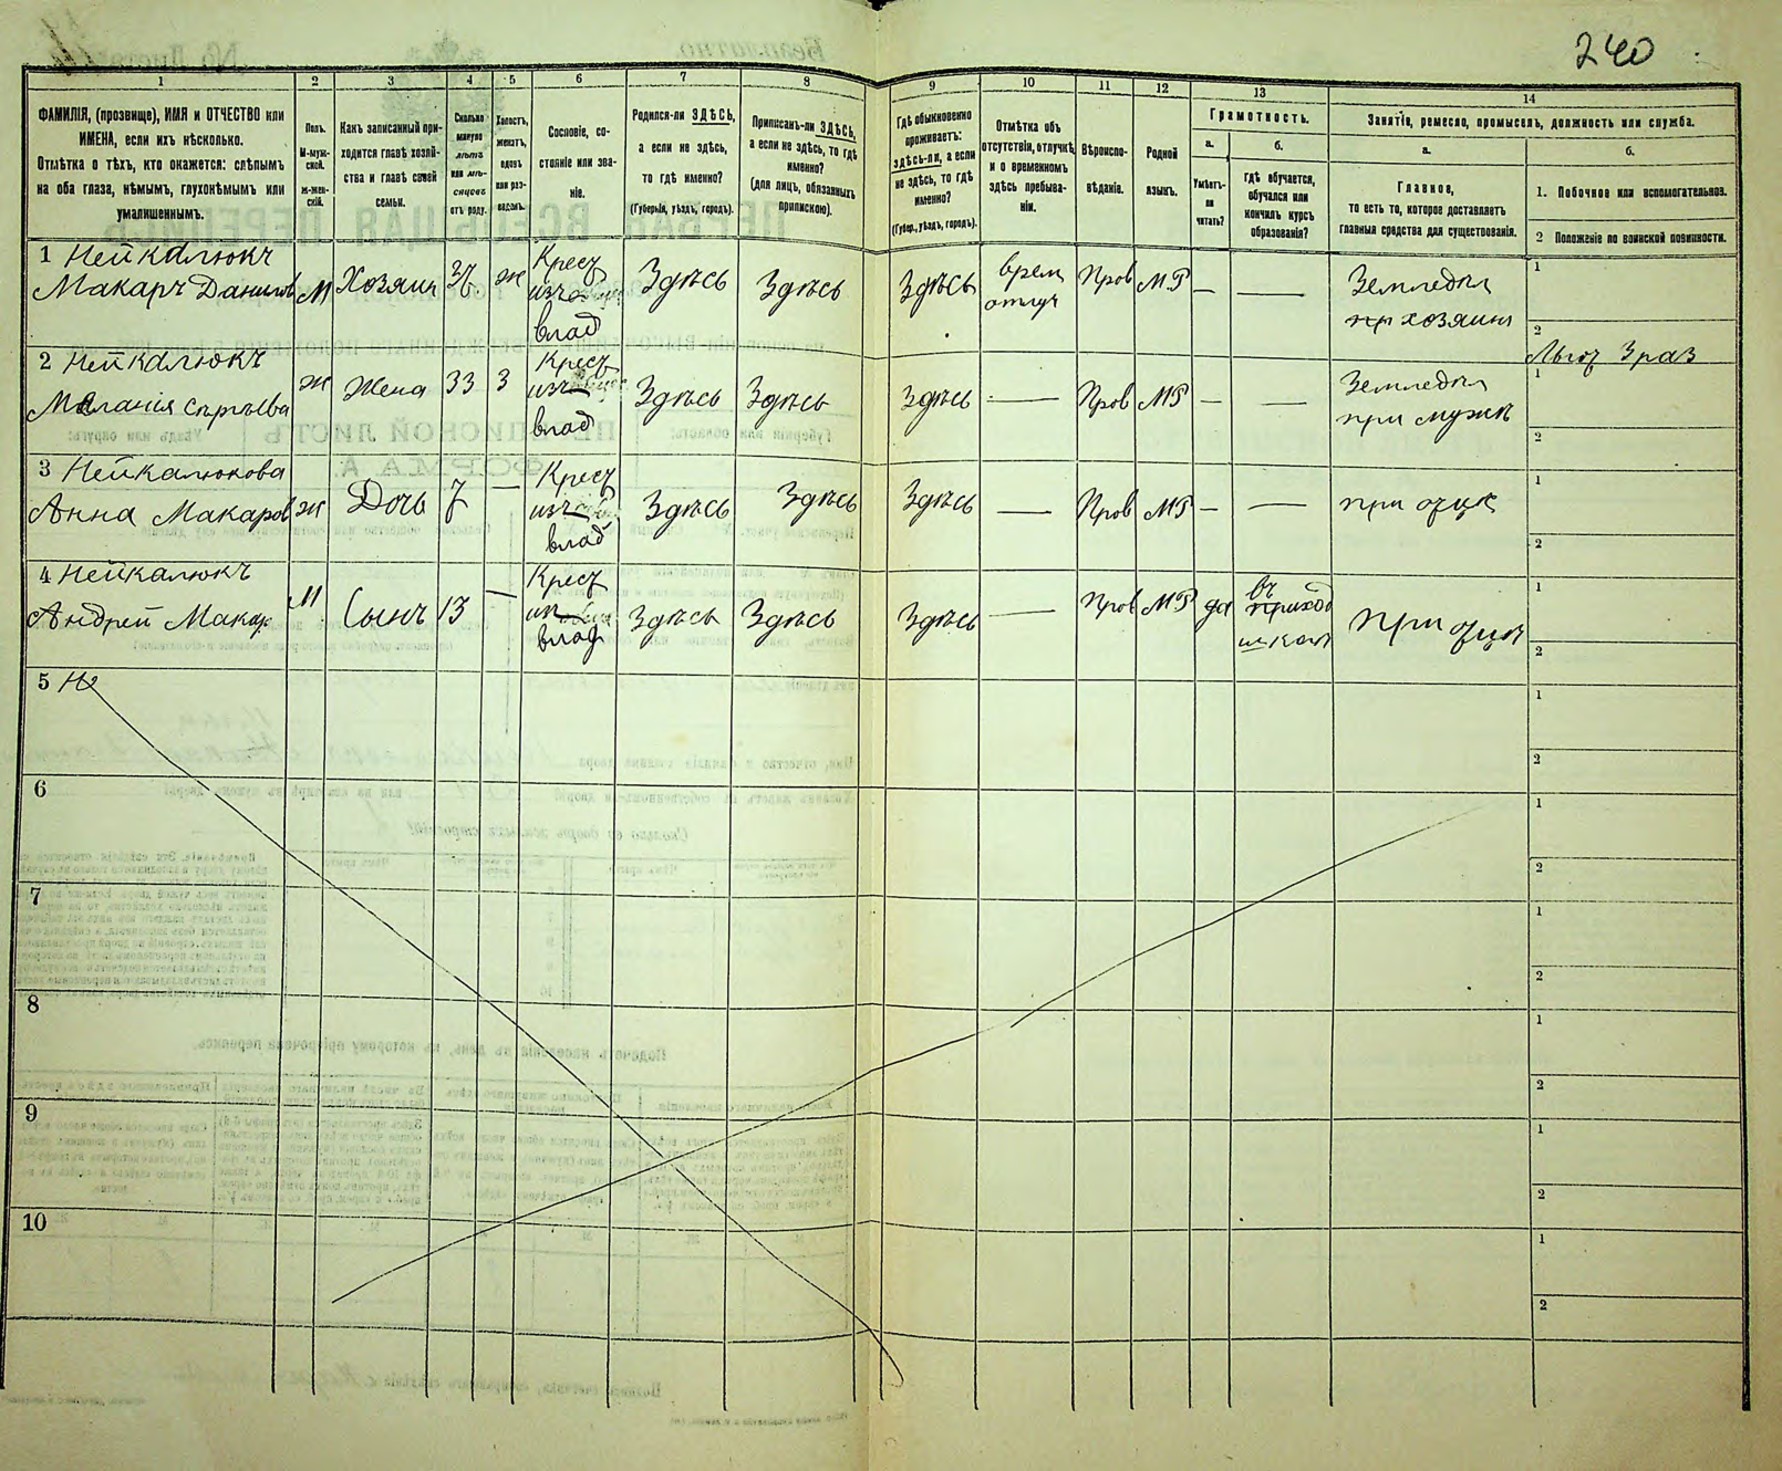 240
1 2 3 4 5 6 7 8 9 10 11 12 13 14
ФАМИЛІЯ, (прозвище), ИМЯ и ОТЧЕСТВО или
ИМЕНА, если ихъ нѣсколько.
Отмѣтка о тѣхъ, кто окажется: слѣпымъ
на оба глаза, нѣмымъ, глухонѣмымъ или
умалишеннымъ.
Полъ.
М-муж-
ской.
ж-жен-
скій.
Какъ записанный при-
ходится главѣ хозяй-
ства и главѣ своей
семьи.
Сколько
минуло
лѣтъ
или мѣ-
сяцевъ
отъ роду.
Холостъ,
женатъ,
вдовъ
или раз-
веденъ.
Сословіе, со-
стояніе или зва-
ніе.
Родился-ли ЗДѢСЬ,
а если не здѣсь,
то гдѣ именно?
(Губернія, уѣздъ, городъ).
Приписанъ-ли ЗДѢСЬ,
а если не здѣсь, то гдѣ
именно?
(для лицъ, обязанныхъ
припискою).
Гдѣ обыкновенно
проживаетъ:
здѣсь-ли, а если
не здѣсь, то гдѣ
именно?
(Губер., уѣздъ, городъ).
Отмѣтка объ
отсутствіи, отлучкѣ
и о временномъ
здѣсь пребыва-
ніи.
Вѣроиспо-
вѣданіе.
Родной
языкъ.
Грамотность.
а.
Умѣетъ-
ли
читать?
б.
Гдѣ обучается,
обучался или
кончилъ курсъ
образованія?
Занятіе, ремесло, промыселъ, должность или служба.
а.
Главное,
то есть то, которое доставляетъ
главныя средства для существованія.
б.
1. Побочное или вспомогательное.
2 Положеніе по воинской повинности.
1 Нейкалюкъ
Макаръ Данилов М Хозяинъ ж Здѣсь Здѣсь Здѣсь Пров МР — —
Крест
изъ
влад
врем
отлуч
Земледѣл
хозяинъ
1
2
Льгот 3 раз
2 Нейкалюкъ
Меланія Сѣргѣева ж Жена 33 З Здѣсь Здѣсь Здѣсь — Пров МР — —
Крест
изъ
влад
Земледѣл
при мужѣ
1
2
3 Нейкалюкова
Анна Макаров ж Дочь 7 — Здѣсь Здѣсь Здѣсь — Пров МР — —
Крест
изъ
влад
при отцѣ
1
2
4 Нейкалюкъ
Андрей Макар М Сынъ 13 — Здѣсь Здѣсь Здѣсь — Пров МР да
Крест
влад
въ
приход
школѣ
при отцѣ
1
2
5 Не
1
2
6
1
2
7
1
2
8
1
2
9
1
2
10
1
2